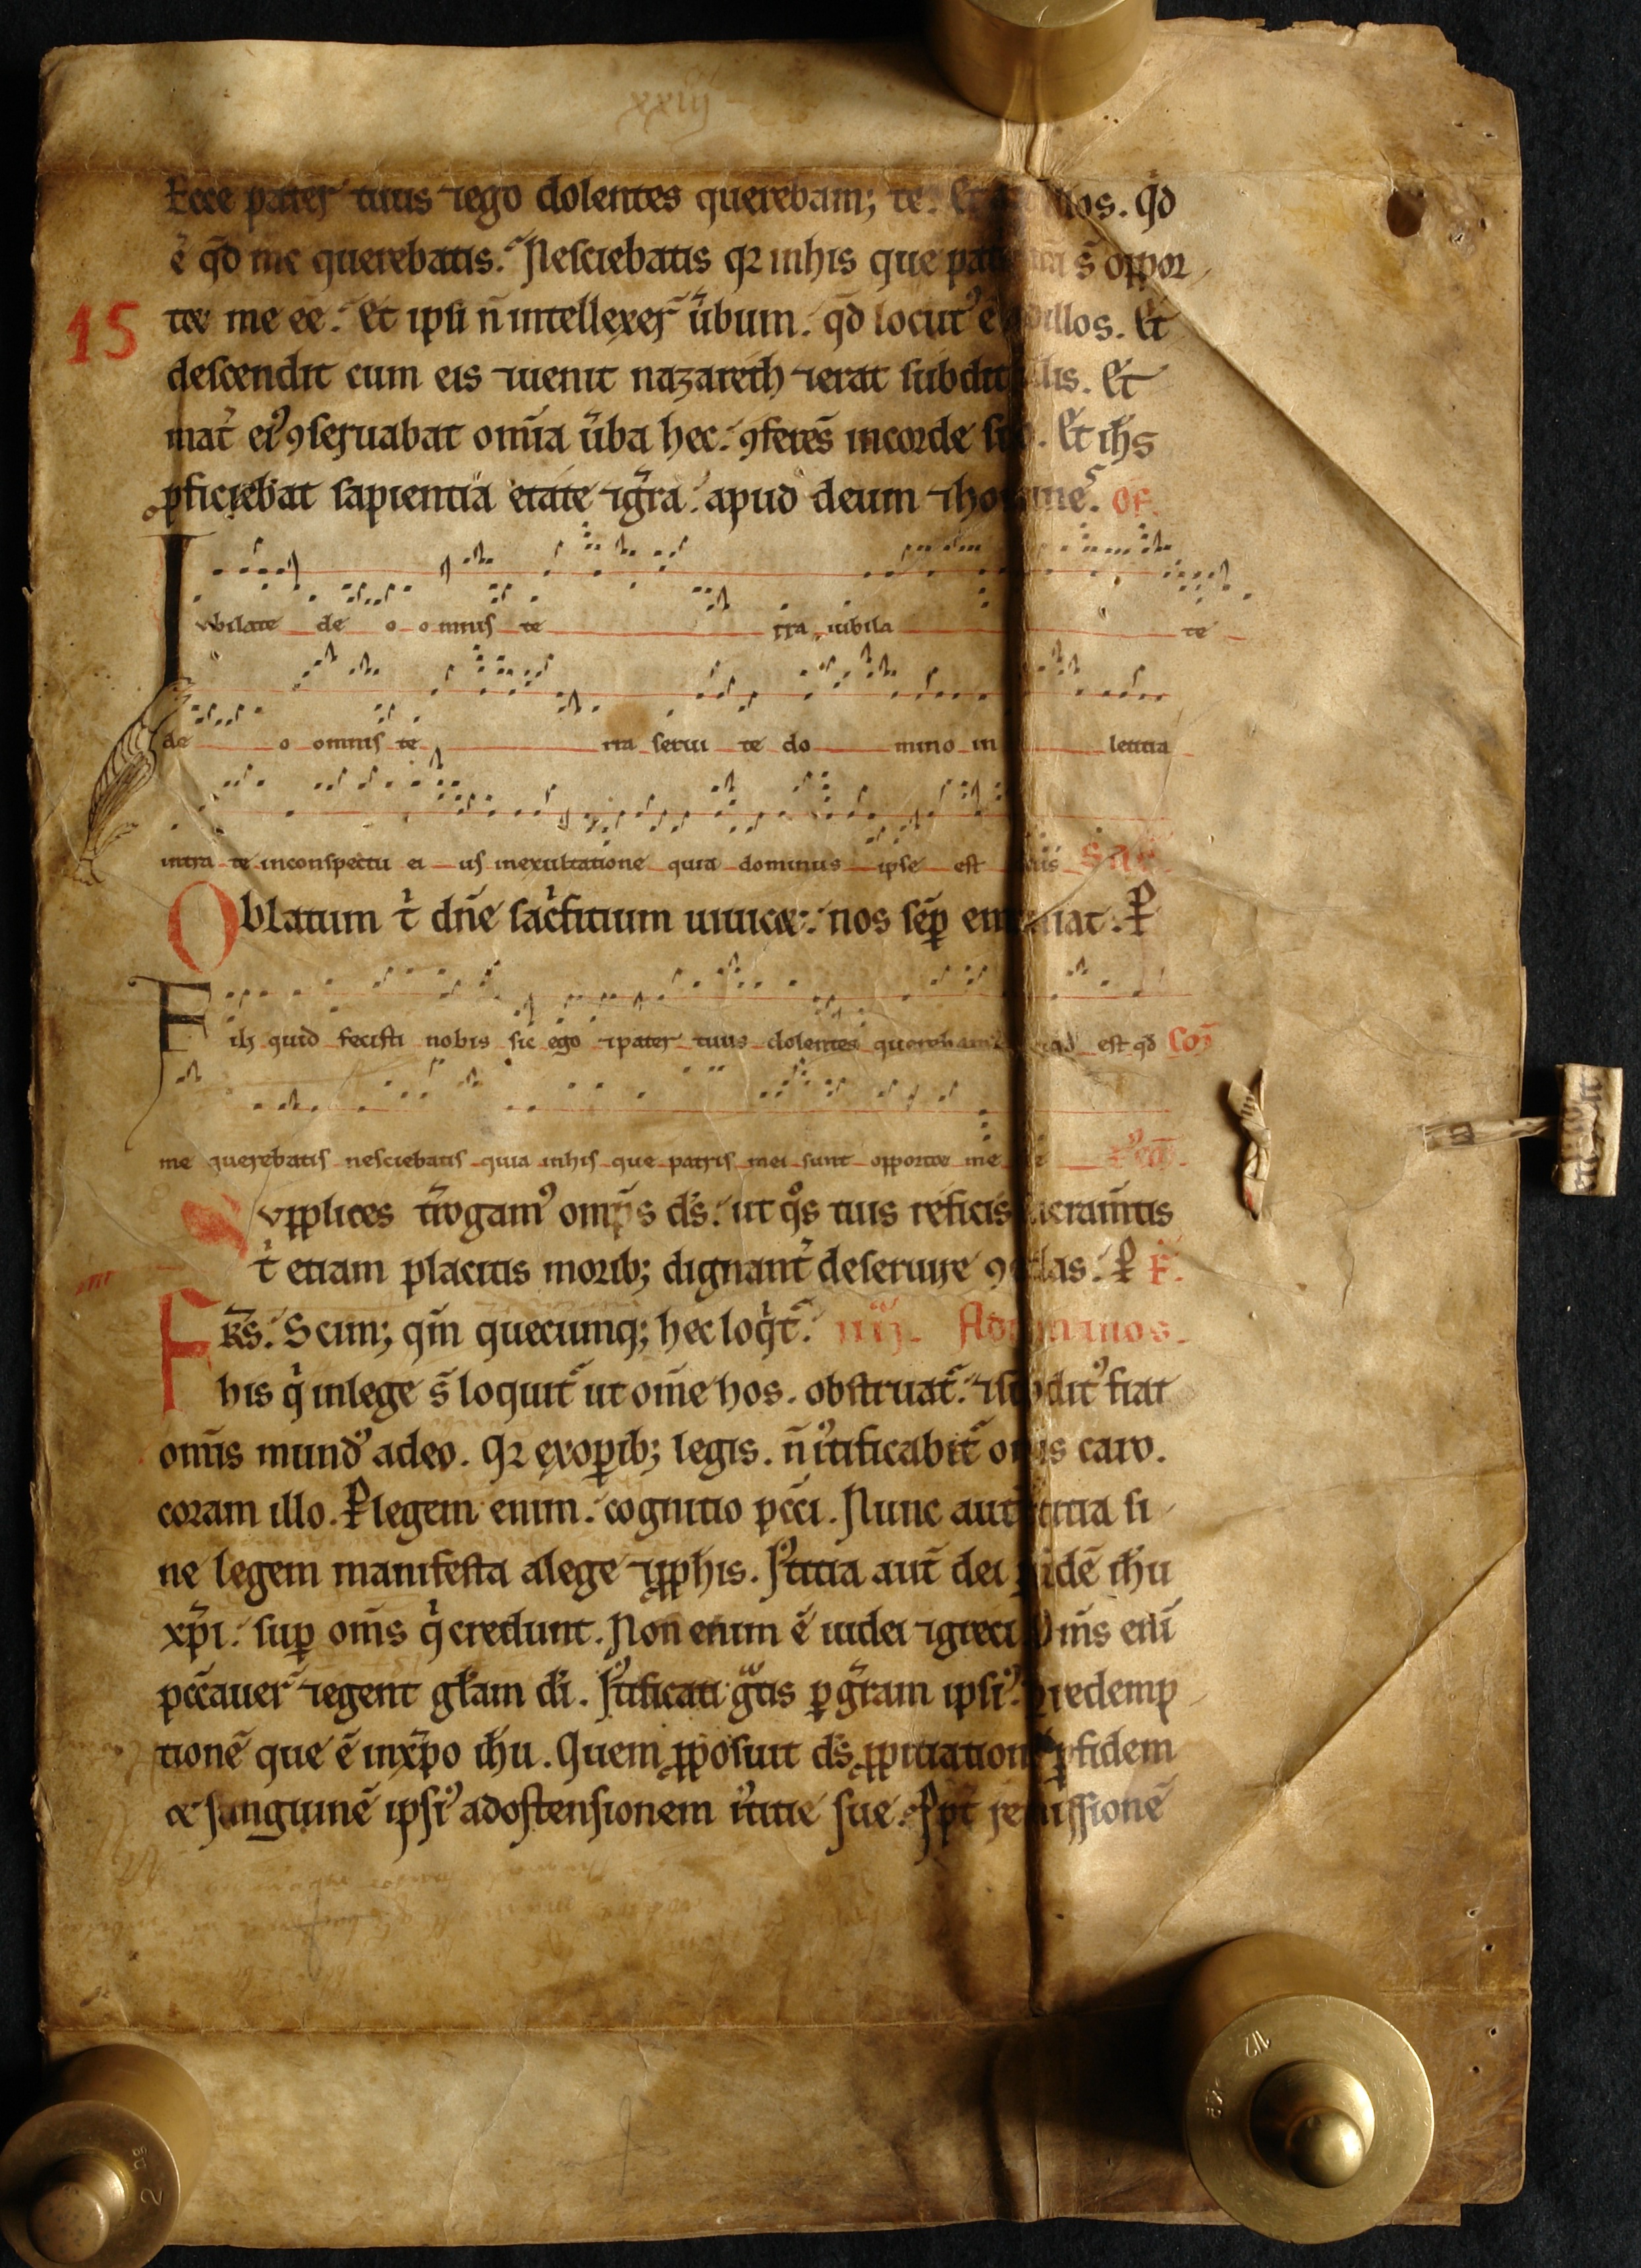 xxiiij
Ecce pater tuus ⁊ego dolentes querebam; te. Et illos. q̇d
ē q̇d me querebatis. Nesciebatis qꝛ inhis que s̄ oppor
15
tꝫ me ēē. Et ipsi n̄ intellexer̄ u̇bum. q̇d locutꝰ ē illos. Et
descendit cum eis ⁊uenit nazareth ⁊erat subdit illis. Et
mat̄ eiꝰ ꝯseruabat om̄ia u̇ba hec. ꝯferēs incorde suo. Et ih̄s
ꝓficiebat sapientia etate ⁊gr̄a. apud deum ⁊homineſ. OF.
Iubilate de o o mnis te rra iubila te
de o omnis te rra serui te do mino in letitia
intra te inconspectu ei us inexultatione quia dominus ipse est
Oblatum t̄ dn̄e sac̄fitium uiuicꝫ: nos sēꝑ emuniat. P̄
Fili quid fecisti nobis sic ego ⁊pater tuus dolentes querebam est qd Coꝫ
me querebatis nesciebatis quia inhis que patris mei sunt opportꝫ me
Supplices t̄rogamꝰ omp̄s ds̄. ut q̊s tuis reficis sacram̄tis
t̄ etiam placitis morib; dignant̄ deseruire P̄ F̄.
Frs̄. Scim; qm̄ quecumq; hec loq̇t̄. iiij. Ad romanos.
his q̇ inlege s̄ loquit̄ ut om̄e hos. obstruat̄. ⁊subditꝰ fiat
om̄is mundꝰ adeo. Qꝛ exoꝑib; legis. n̄ iꝰtificabit̄ omis caro.
coram illo. P̄ legem enim. cognitio pcc̄i. Nunc aut̄ iꝰtitia si
ne legem manifesta alege ⁊ꝓph̄is. Iꝰtitia aut̄ dei ꝑ fidē ih̄u
xp̄i. suꝑ om̄s q̇ credunt. Non enim ē iudei ⁊greci Om̄s eni
pcc̄auer̄ ⁊egent gl̄am dī. Iꝰtificati gͣtis ꝑ gr̄am ipsiꝰ. ꝑ redemp
tionē que ē inxp̄o ih̄u. Quem ꝓposuit ds̄ ꝓpitiationē ꝑ fidem
ꝫ sanguinē ipsiꝰ adostensionem iꝰtitie sue. Ppt̄ remissionē